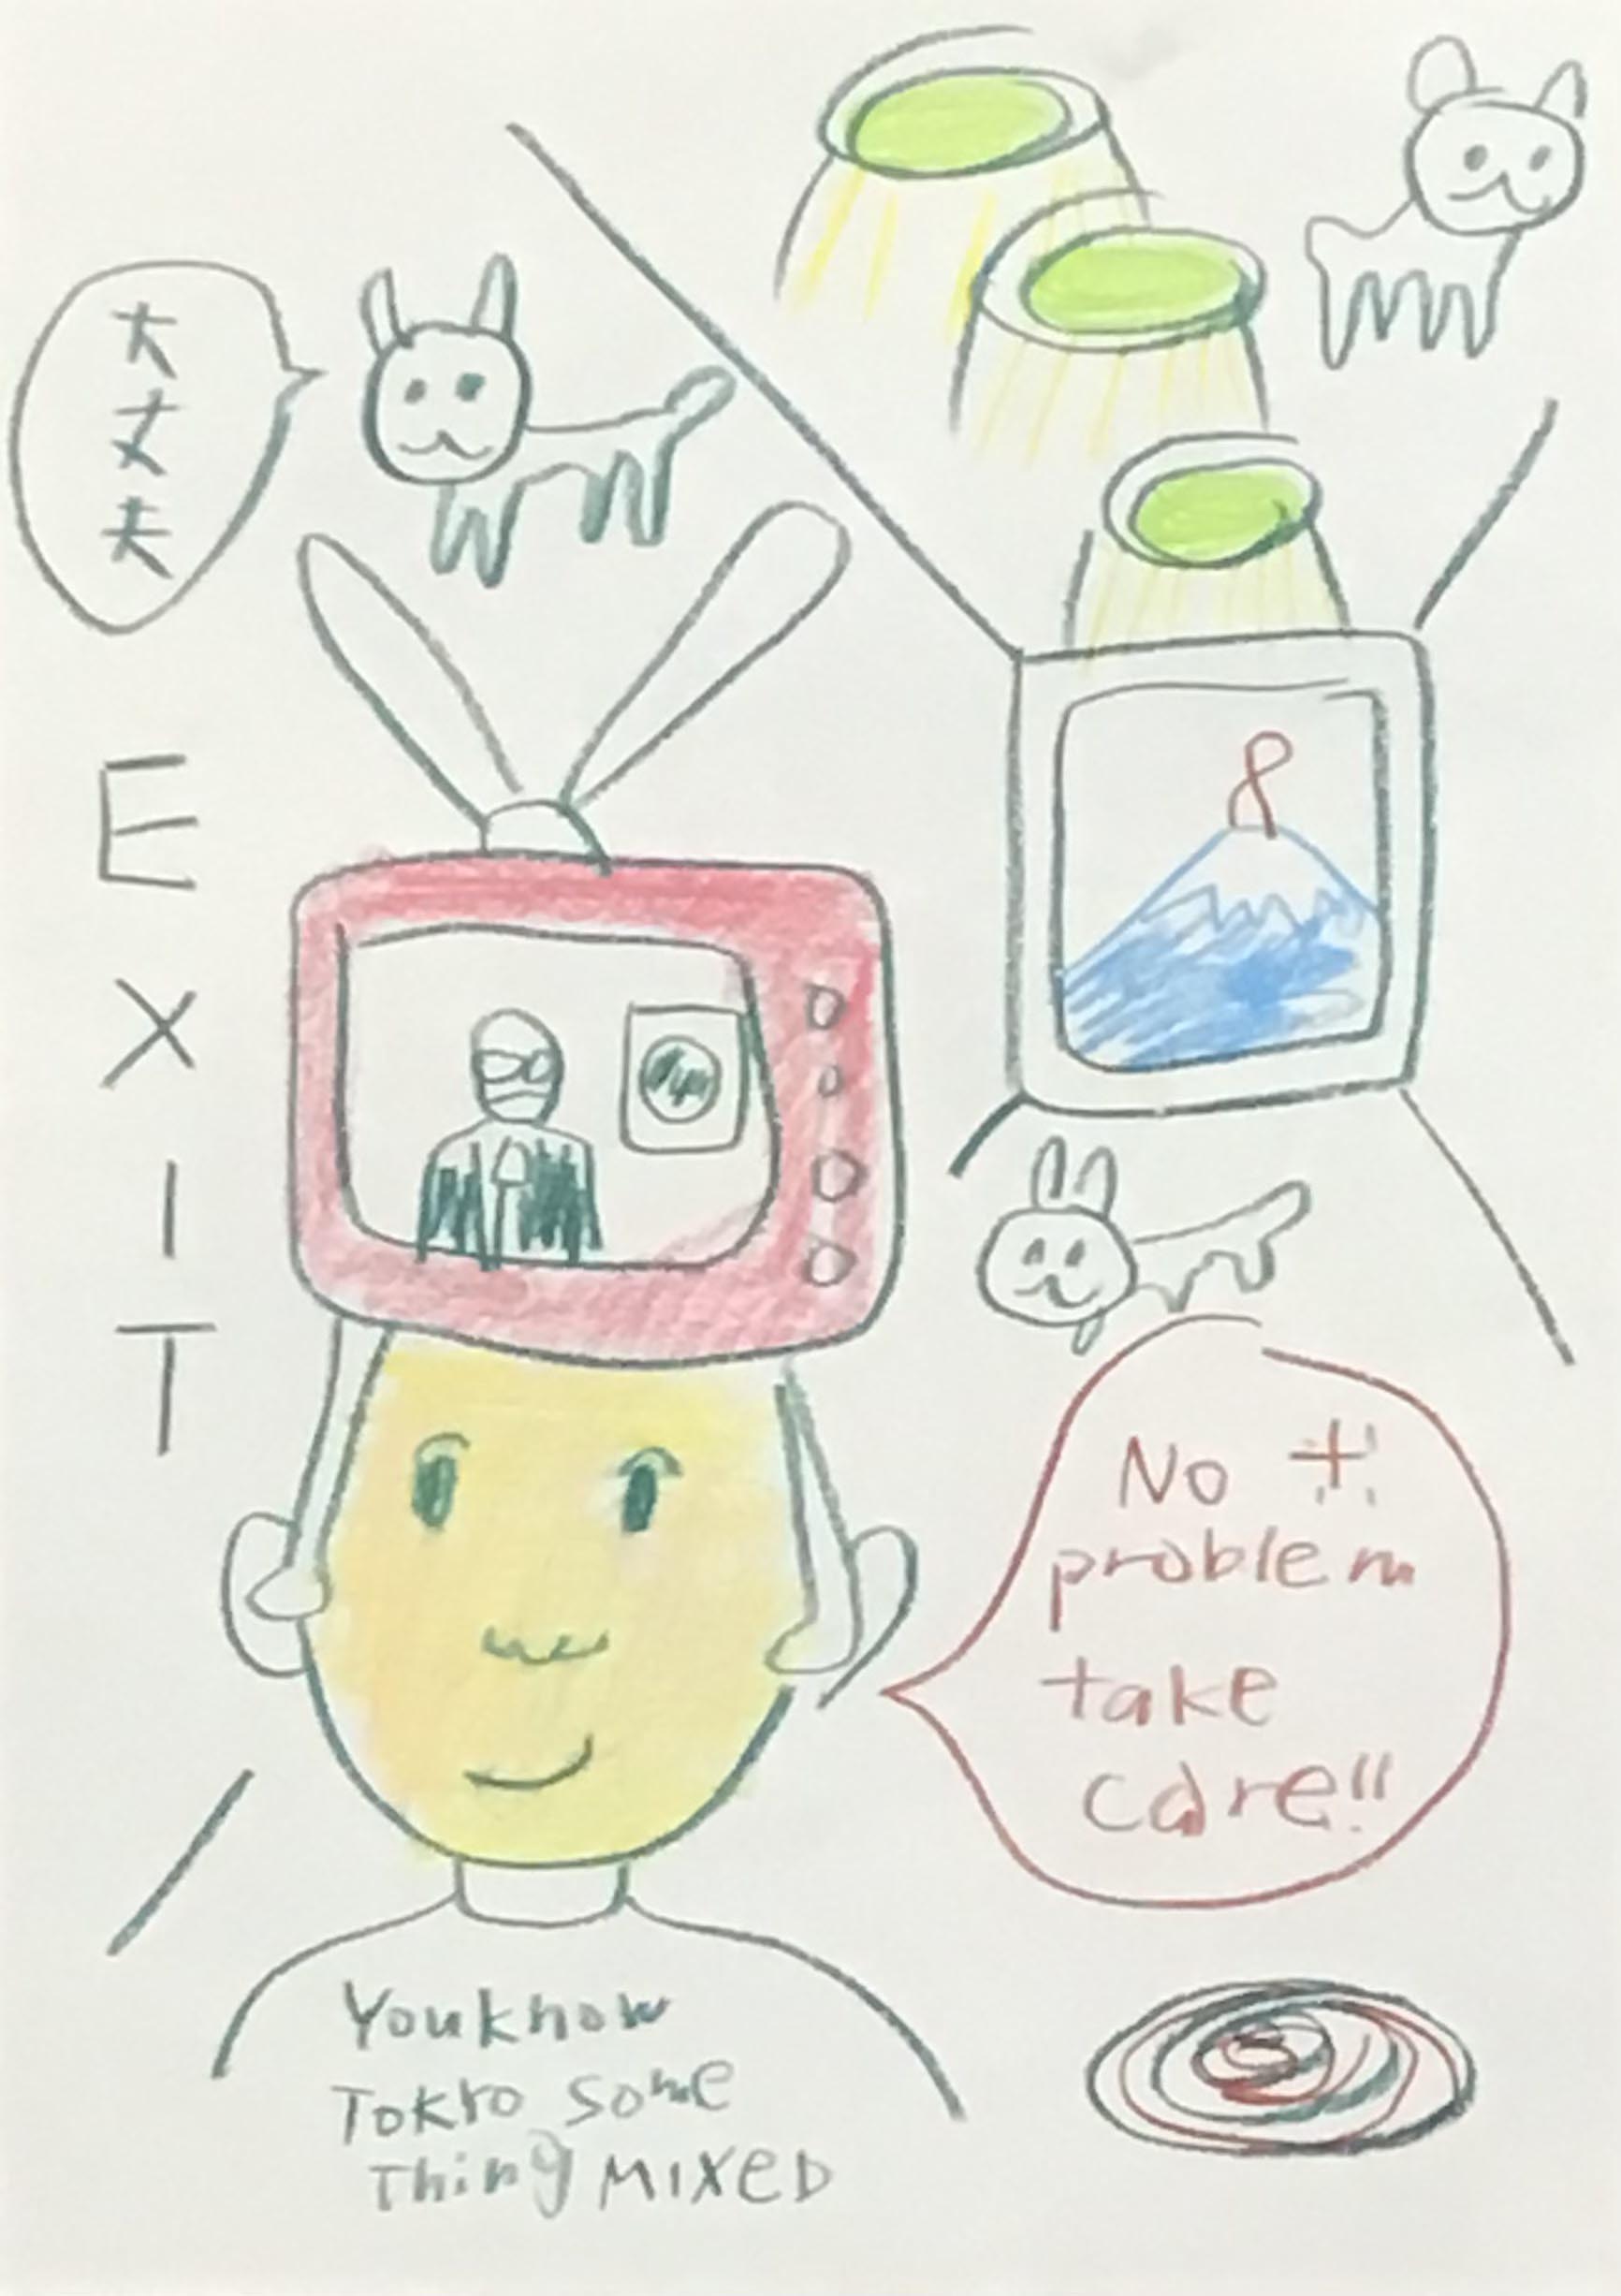 大丈夫
EXIT
No
problem
take
care!!
Youknow
Tokyo Some
Thing MIXED